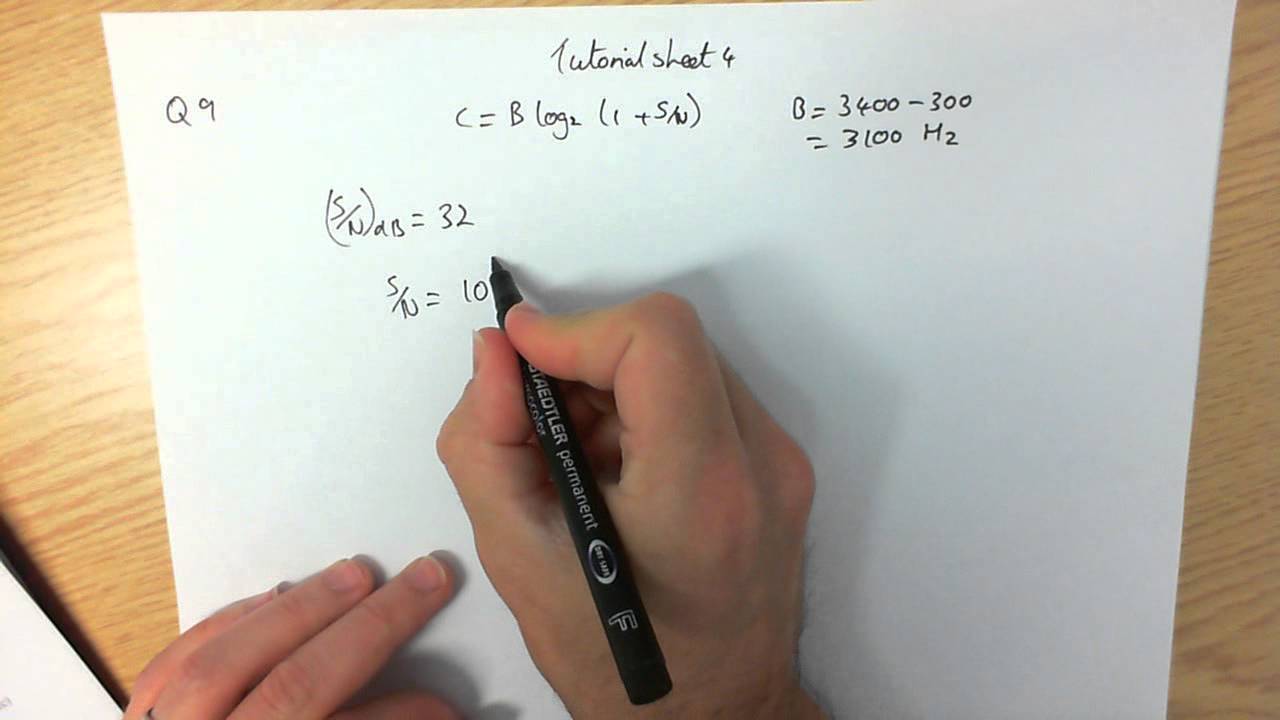 Tutorial sheet 4
Q9
C = B log₂ (1 + S/N)
B = 3400 - 300
= 3100 Hz
(S/N)dB = 32
S/N = 10
STAEDTLER permanent
DRY SAFE
F